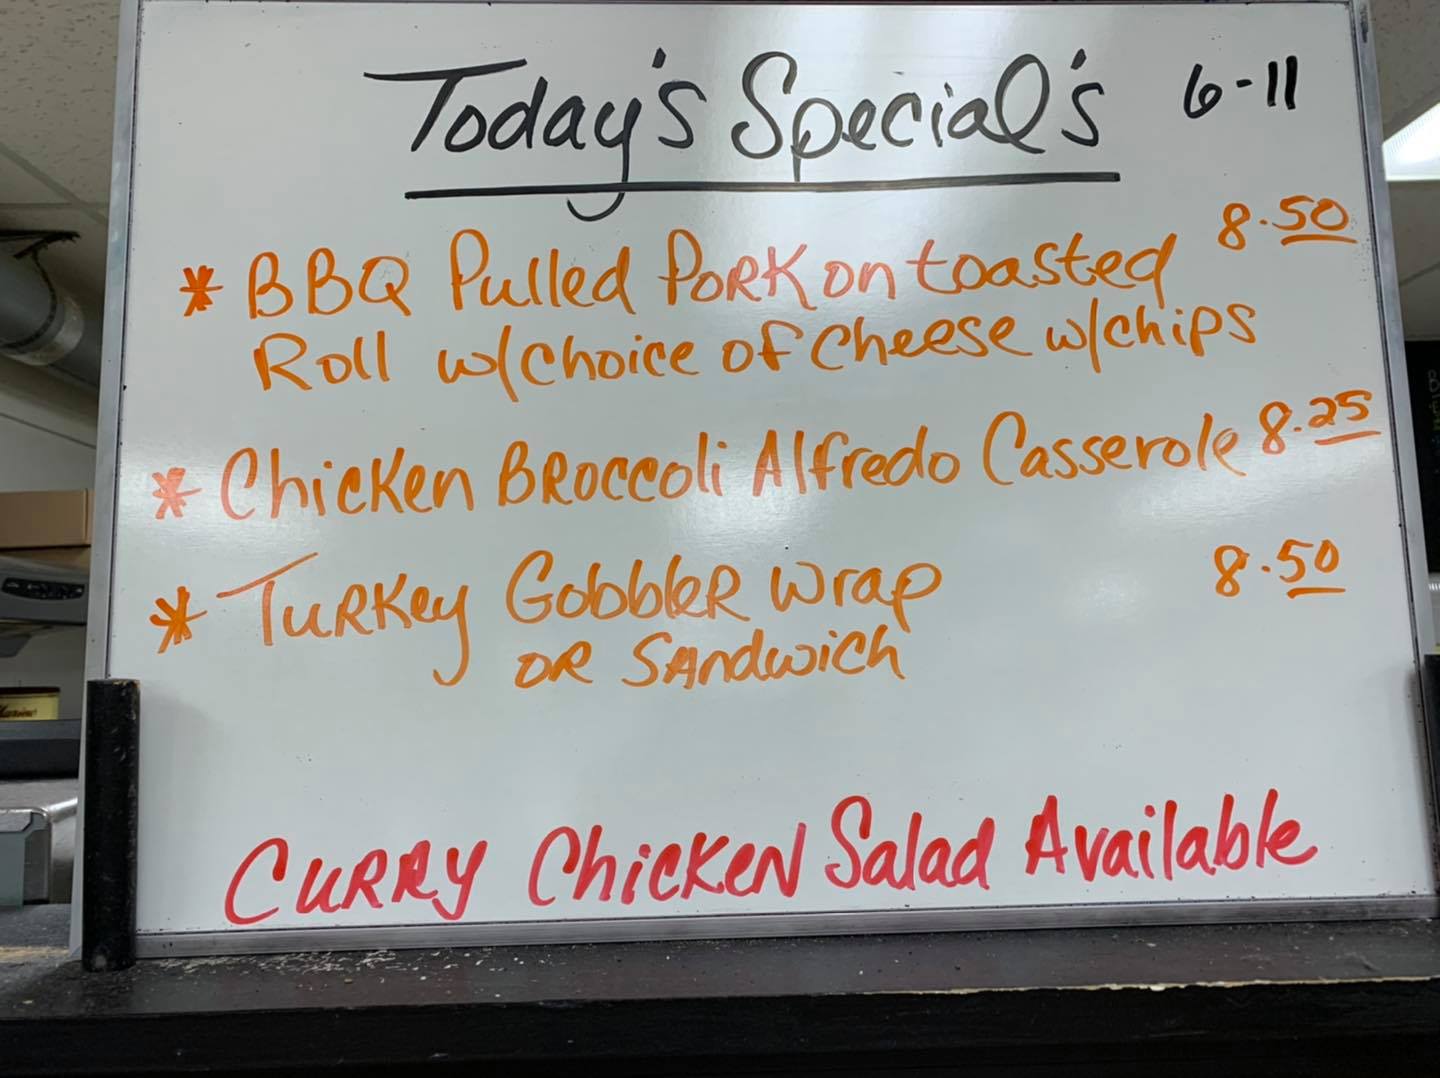 Today's Special's 6-11
* BBQ Pulled Pork on toasted 8.50
Roll w/choice of cheese w/chips
* Chicken Broccoli Alfredo Casserole 8.25
* Turkey Gobbler wrap 8.50
or Sandwich
Curry Chicken Salad Available